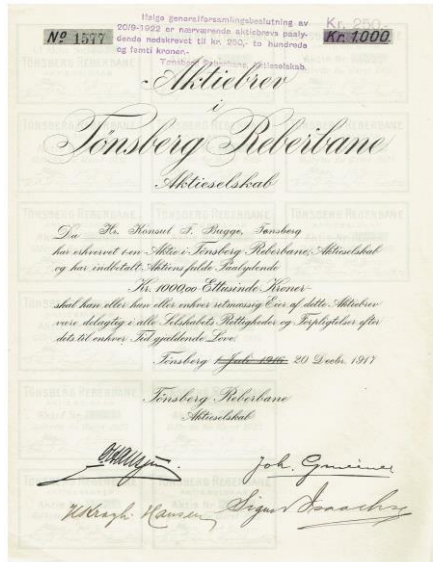 Ifølge generalforsamlingsbeslutning av
20/9-1922 er nærværende aktiebrevs paaly-
dende nedskrevet til kr. 250,- to hundrede
og femti kroner.-
Tønsberg Reberbane, Aktieselskab.
Kr. 250.-
No 1577
Kr. 1.000.
Aktiebrev
i
Tönsberg Reberbane
Aktieselskab
Da Hr. Konsul F. Bugge, Tønsberg
har erhvervet een Aktie i Tönsberg Reberbane, Aktieselskab
og har indbetalt Aktiens fulde Paalydende
Kr. 1000,00 Ettusinde Kroner
skal han eller han eller enhver retmæssig Eier af dette Aktiebrev
være delagtig i alle Selskabets Rettigheder og Forpligtelser efter
dets til enhver Tid gjældende Love.
Tönsberg 1. Juli 1916 20 Decbr. 1917
Tönsberg Reberbane
Aktieselskab
Joh. Gmeiner
H Kragh Hansen
Sigurd Isaachsen